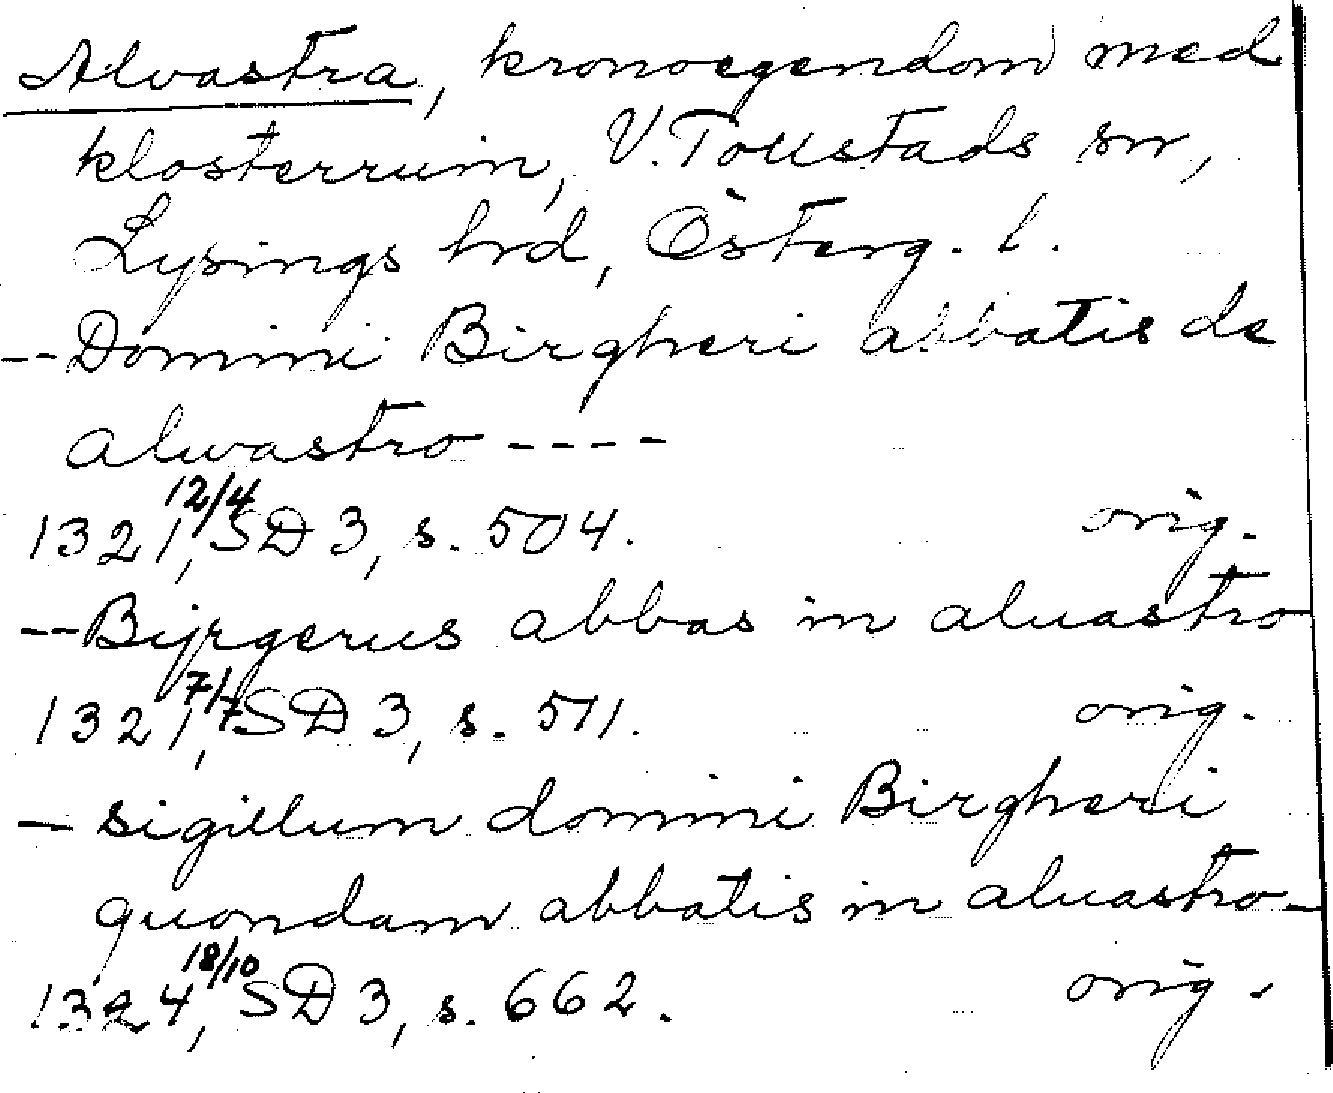 Alvastra, kronoegendom med
klosterruin, V. Tollstads sn,
Lysings hrd, Österg. l.
-- Domini Birgheri abbatis de
alwastro ----
1321 12/4, SD 3, s. 504. orig.
-- Bijrgerus abbas in aluastro
1321 7/7, SD 3, s. 511. orig.
- sigillum domini Birgheri
quondam abbatis in aluastro -
1324 18/10, SD 3, s. 662. orig.